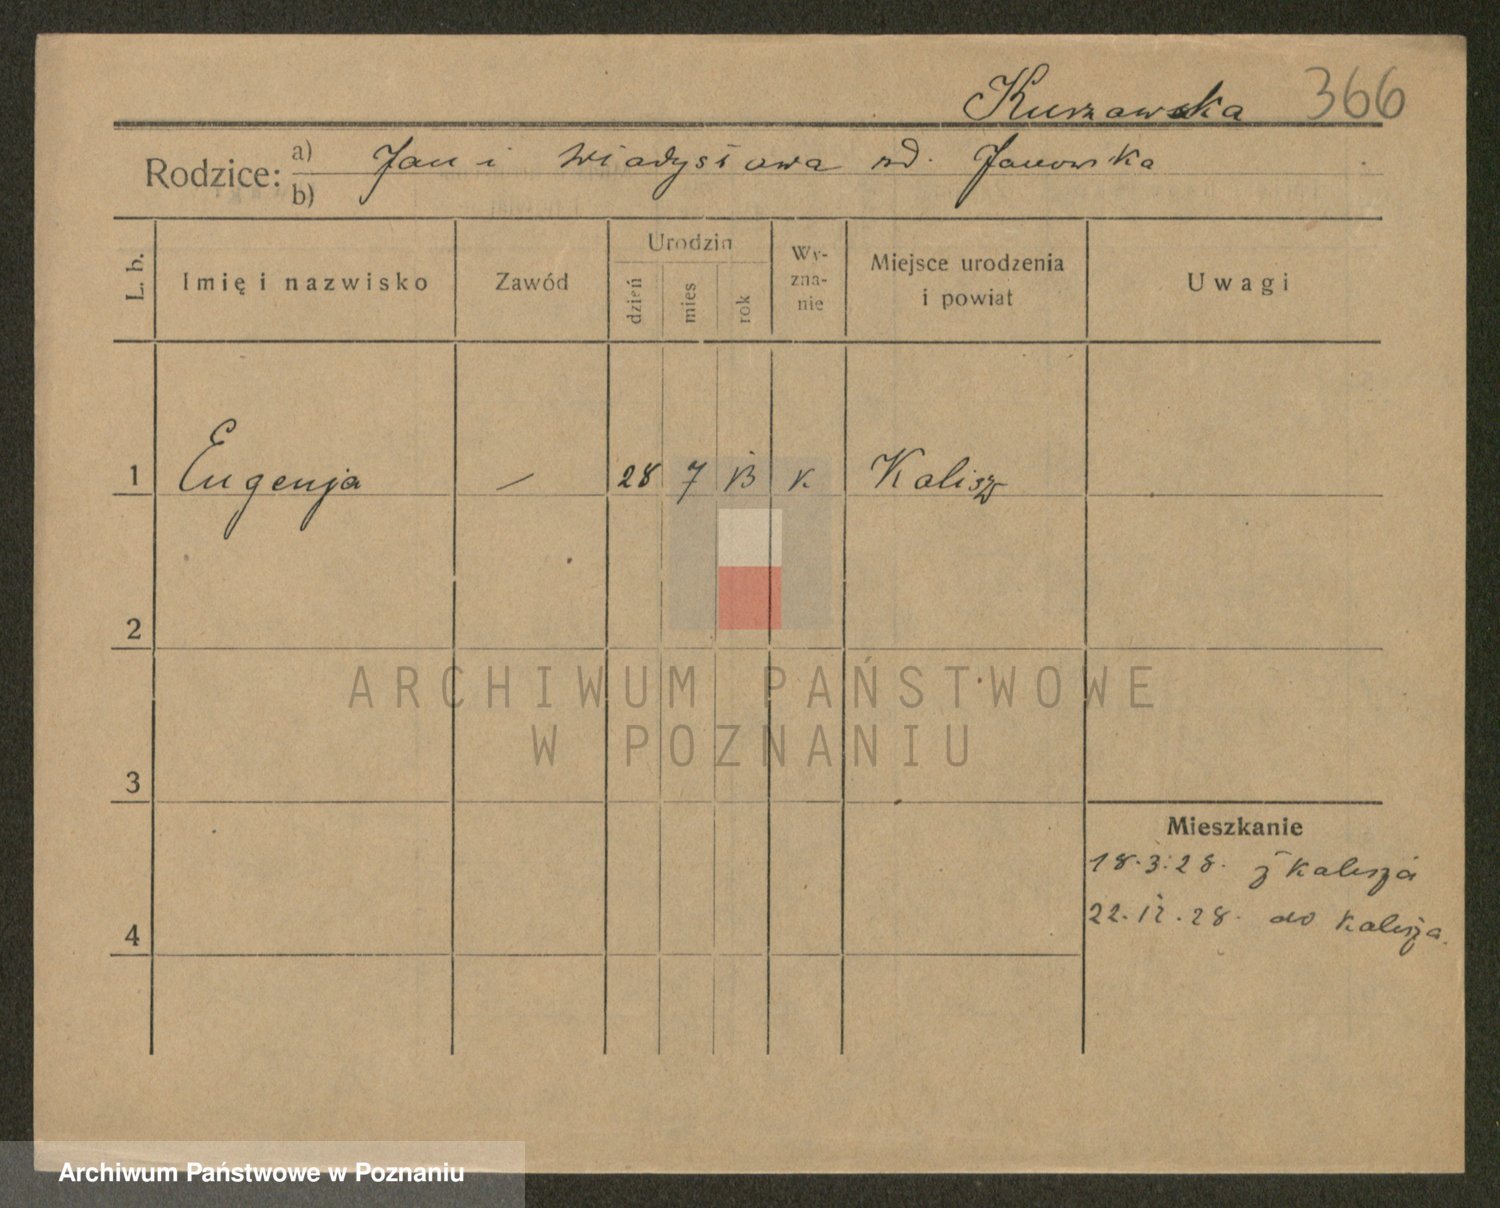 Kurzawska 366
Rodzice: a) Jan i Władysława ad. Janowska
b)
L. b. Imię i nazwisko Zawód Urodzin dzień mies rok Wy-zna-nie Miejsce urodzenia i powiat Uwagi
1 Eugenja — 28 7 13 k Kalisz
2
ARCHIWUM PAŃSTWOWE
W POZNANIU
3
Mieszkanie
18.3.28. z Kalisza
22.12.28. do Kalisza.
4
Archiwum Państwowe w Poznaniu